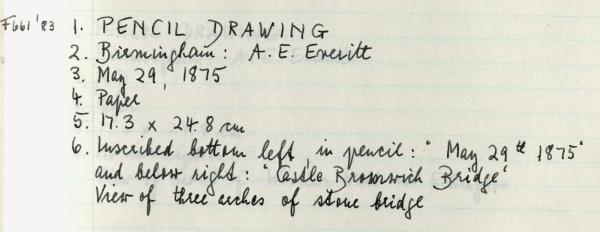 F661'83 1. PENCIL DRAWING
2. Birmingham: A. E. Everitt
3. May 29, 1875
4. Paper
5. 17.3 x 24.8 cm
6. Inscribed bottom left, in pencil: "May 29th 1875"
and below right: "Castle Bromwich Bridge"
View of three arches of stone bridge